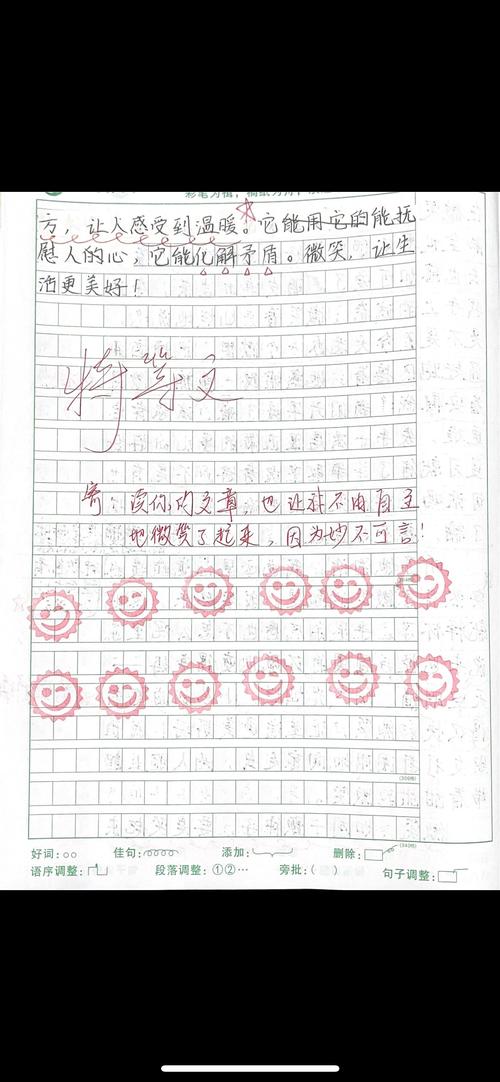 方，让人感受到温暖。它能用它的能抚
慰人的心，它能化解矛盾。微笑，让生
活更美好！
特等文
寄：读你的文章，也让我不由自主
地微笑了起来，因为妙不可言！
(300格)
(340格)
好词： 佳句： 添加： 删除：
语序调整： 段落调整：①②… 旁批：( ) 句子调整：